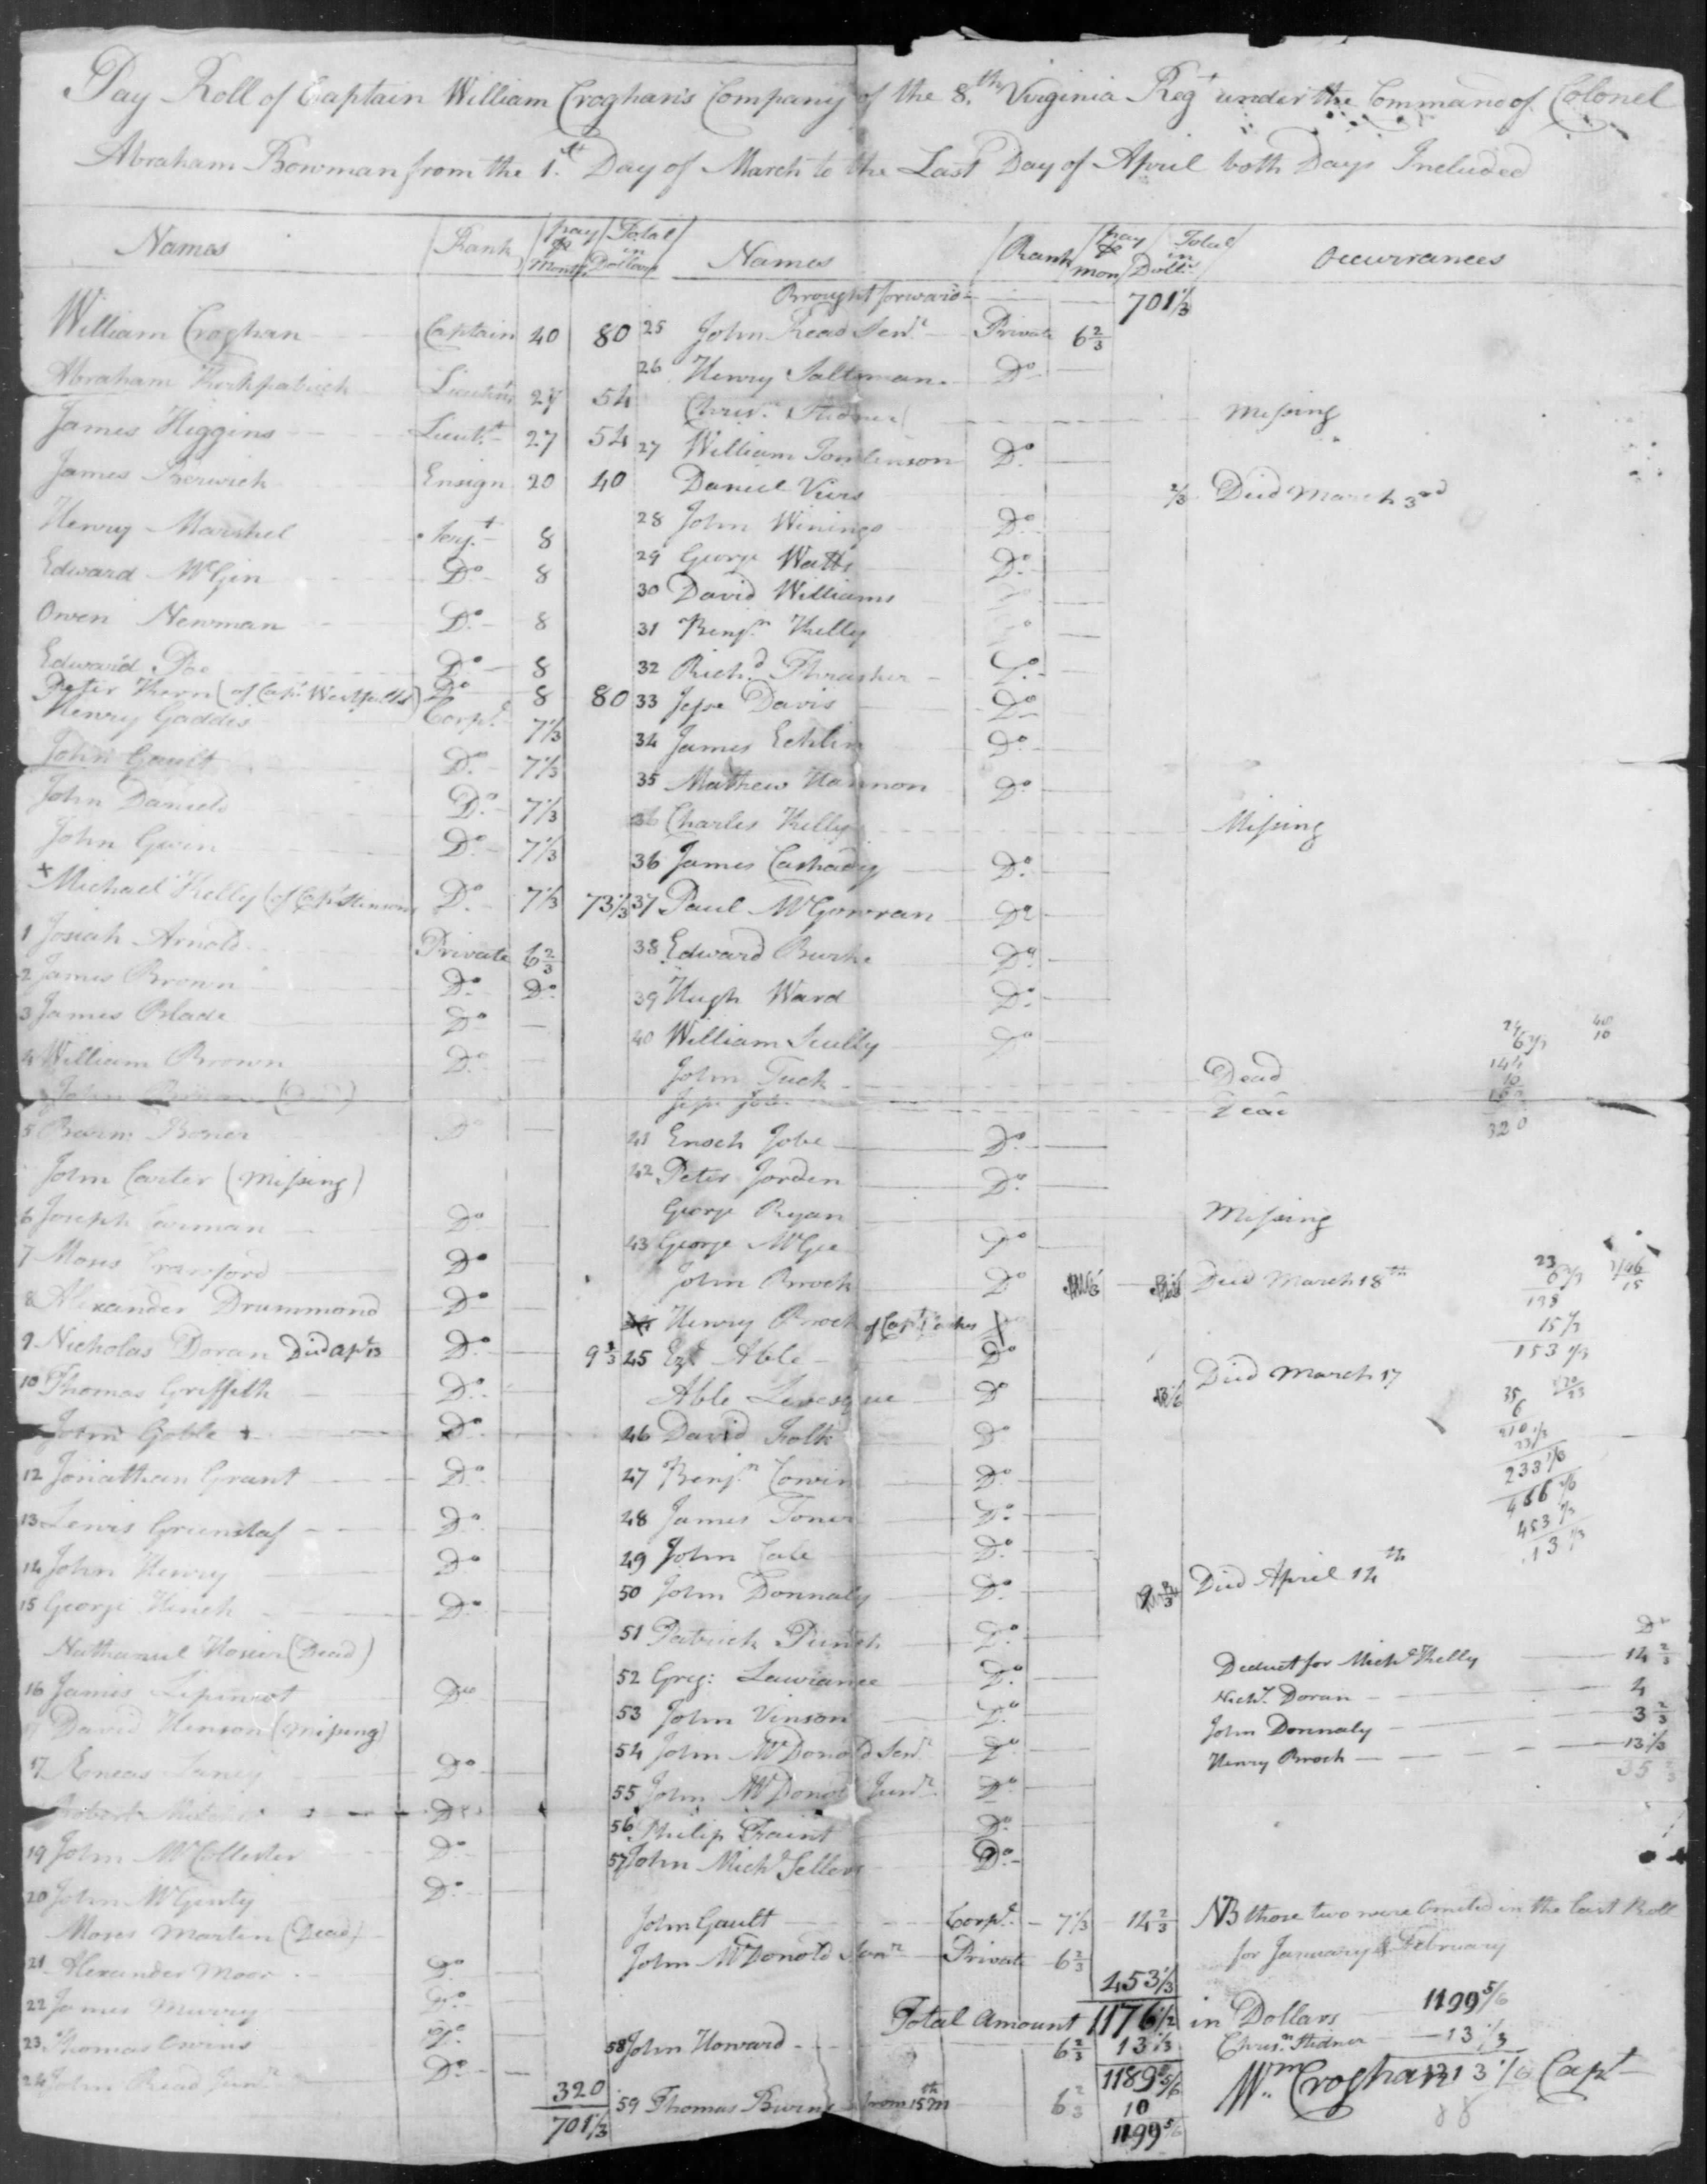 Pay Roll of Captain William Croghan's Company of the 8.th Virginia Regt under the Command of Colonel
Abraham Bowman from the 1.st Day of March to the Last Day of April both Days Included
Names Rank pay pr Month Total in Dollars
William Croghan Captain 40 80
Abraham Kirkpatrick Lieutent 27 54
James Higgins Lieutt 27 54
James Berwick Ensign 20 40
Henry Marshel Serjt 8
Edward McGin Do 8
Owen Newman Do 8
Edward Poe Do 8
Peter Kern (of Capn Westfalls) Do 8 80
Henry Gaddis Corpl 7 1/3
John Gault Do 7 1/3
John Daniels Do 7 1/3
John Gwin Do 7 1/3
+ Michael Kelly (of Capt Stinsons Do 7 1/3 73 1/3
1 Josiah Arnold Private 6 2/3
2 James Brown Do Do
3 James Blade Do
4 William Brown Do
John
5 Do
John Carter (Missing)
6 Joseph Do
7 Moses Crawford Do
8 Alexander Drummond Do
9 Nicholas Doran Died Apl 13 Do 9 1/3
10 Thomas Griffith Do
John Goble + Do
12 Jonathan Grant Do
13 Lewis Grinstaf Do
14 John Henry Do
15 George Hinch Do
Nathaniel Hosier (Dead)
16 James Lipincot Do
David Henson (Missing)
17 Eneas Do
Robert Do
19 John McCollester Do
20 John McGinty Do
Moses Martin (Dead)
21 Alexander Moor Do
22 James Murrey Do
23 Thomas Owins Do
24 John Read Junr Do
320
701 1/3
Names Rank pay pr mon Total in Dolls Occurrances
Brought forward 701 1/3
25 John Read Senr Private 6 2/3
26 Henry Saltsman Do
Chrisr Stidner Missing
27 William Tomlinson Do
Daniel Viers 2/3 Died March 3rd
28 John Winings Do
29 George Watts Do
30 David Williams
31 Benjn Kelly
32 Richd Thrasher Do
33 Jesse Davis Do
34 James Echlin Do
35 Mathew Hannon Do
36 Charles Kelly Missing
36 James Cashady Do
37 Paul McGowran Do
38 Edward Burke Do
39 Hugh Ward Do
40 William Scully Do
John Tuck Dead
Jesse Jobe Dead
41 Enoch Jobe Do
42 Peter Jorden Do
George Ryan Missing
43 George McGee Do
John Brock Do Died March 18th
Henry Brock of Capt
45 Ezl Able Do
Able Levesque Do Died March 17
46 David Folk Do
47 Benjn Corwin Do
48 James Toner Do
49 John Cale Do
50 John Donnaly Do 9 2/3 Died April 14th
51 Patrick Punch Do
52 Greg: Lawrance Do
53 John Vinson Do
54 John McDonold Senr Do
55 John McDonold Junr Do
56 Philip Fraint Do
57 John Michl Sellers Do
John Gault Corpl 7 1/3 14 2/3 NB those two were omited in the last Roll
John McDonold Senr Private 6 2/3 for January & February
453 1/3
Total Amount 1176 1/2 in Dollars 1199 5/6
58 John Howard 6 2/3 13 1/3 Chrisr Stidner 13 1/3
1189 5/6 Wm Croghan 1213 1/6 Capt
59 Thomas Burns from 15th M 6 2/3 10
1199 5/6
88
24
6 2/3
144
16
160
320
40
10
23
6 2/3
138
15 1/3
153 1/3
1/46
15
35
6
210
23 1/3
233 1/3
466 2/3
453 1/3
13 1/3
Do
Deduct for Michl Kelly 14 2/3
Nichs Doran 4
John Donnaly 3 2/3
Henry Brock 13 1/3
35 2/3